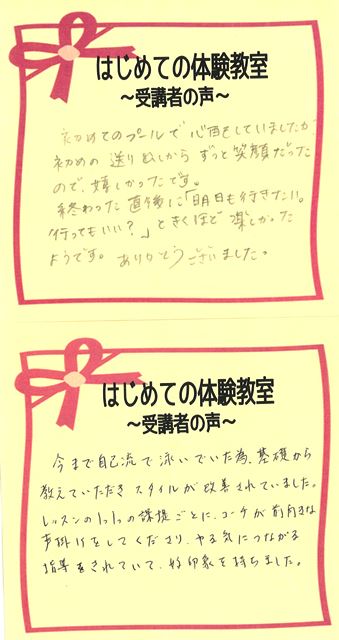 はじめての体験教室
～受講者の声～
初めてのプールで心配をしていましたが、
初めの送り出しから ずっと笑顔だった
ので、嬉しかったです。
終わった直後に「明日も行きたい。
行ってもいい？」ときくほど 楽しかった
ようです。ありがとうございました。
はじめての体験教室
～受講者の声～
今まで自己流で泳いでいた為、基礎から
教えていただき スタイルが改善されていました。
レッスンの1つ1つの課題ごとに、コーチが前向きな
声掛けをしてくださり、やる気につながる
指導をされていて、好印象を持ちました。